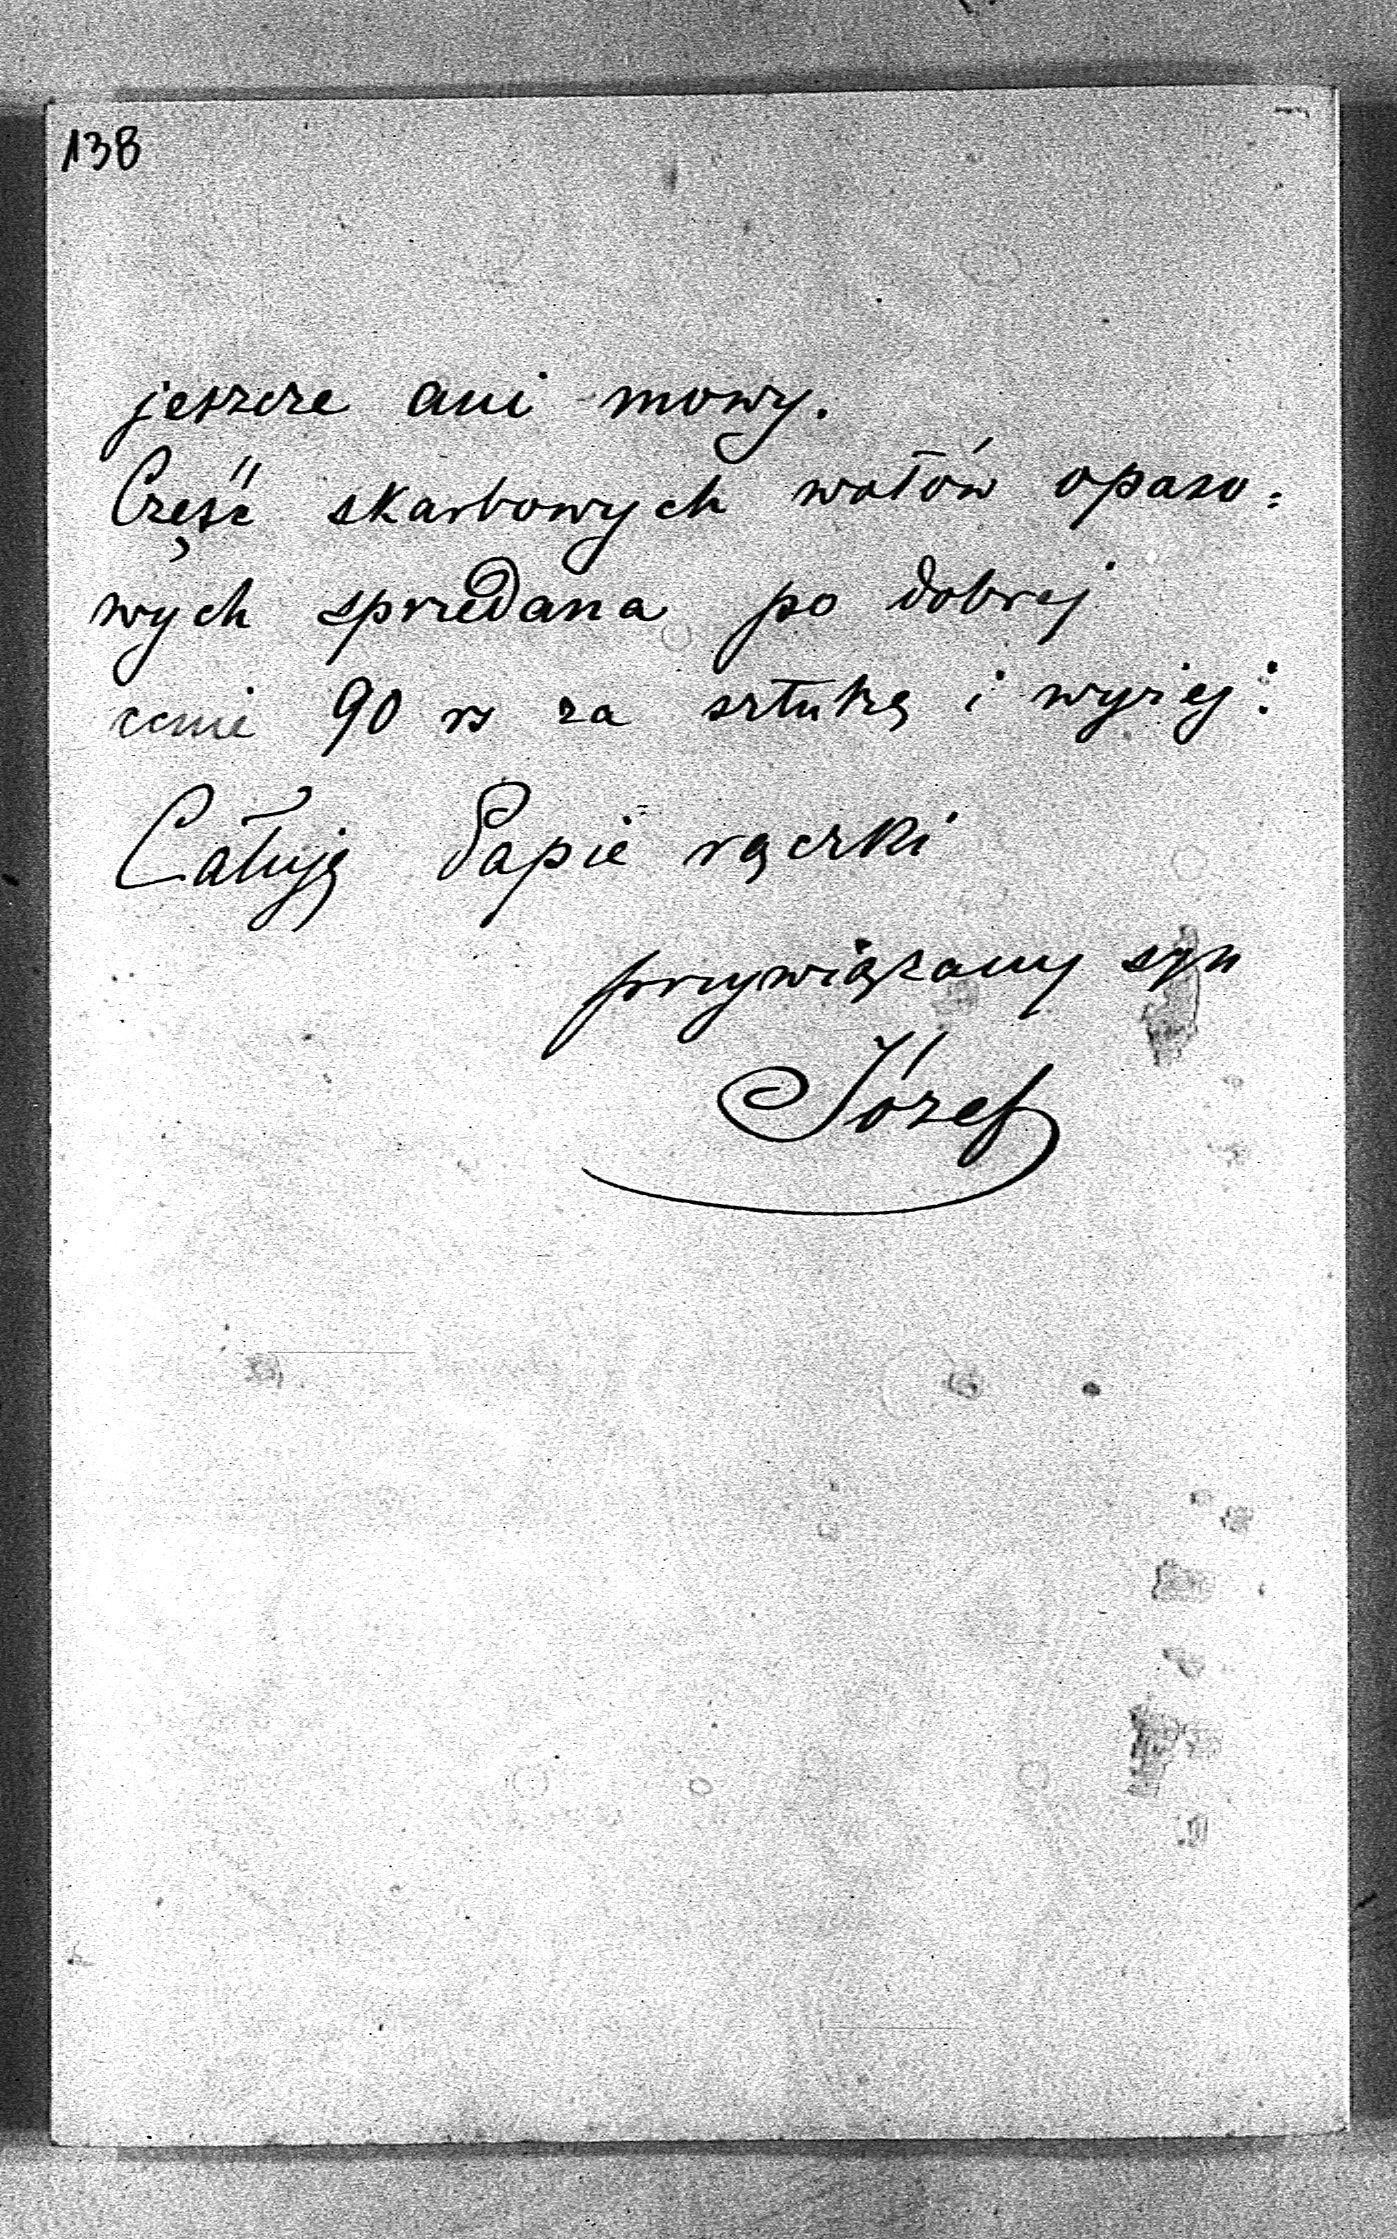 138
jeszcze ani mowy.
Część skarbowych wołów opaso=
wych sprzedana po dobrej
cenie 90 rs za sztukę i wyżej.
Całuję Papie rączki
przywiązany syn
Józef